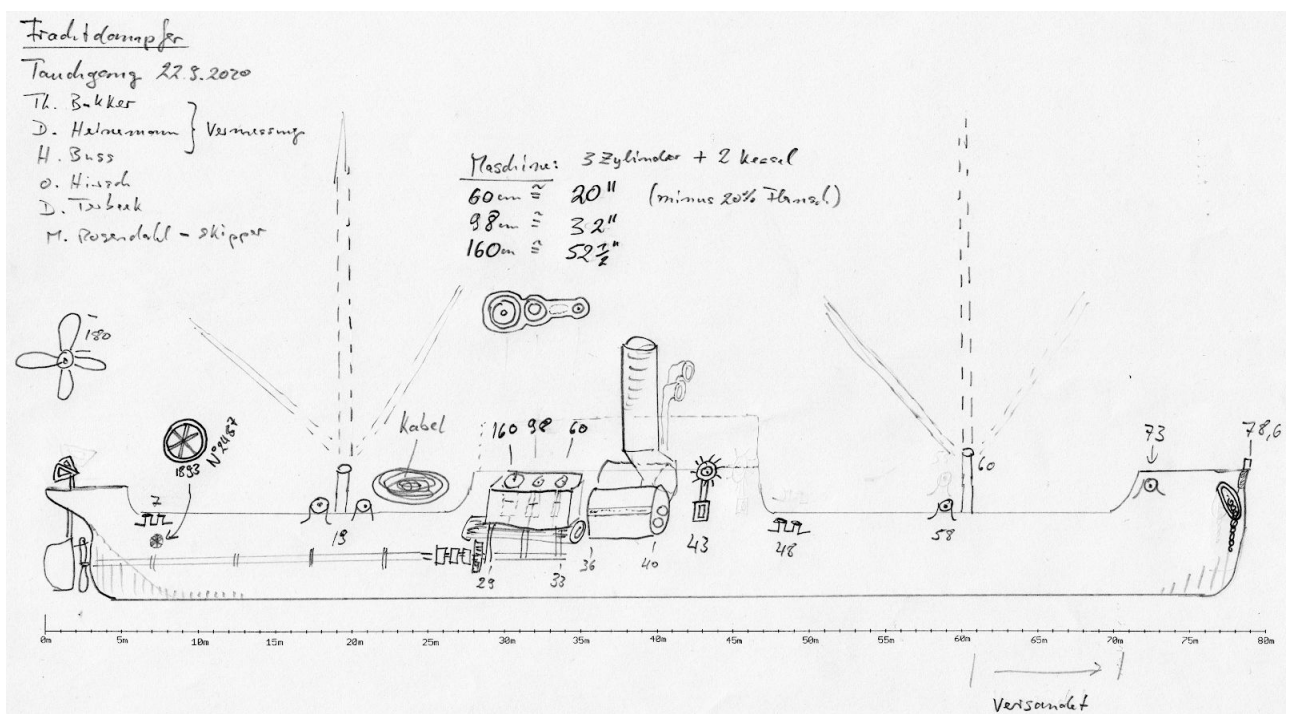 Frachtdampfer
Tauchgang 22.9.2020
Th. Bakker
D. Heinemann } Vermessung
H. Buss
O. Hirsch
D.
M. Rosendahl - Skipper
Maschine: 3 Zylinder + 2 Kessel
60cm ≅ 20" (minus 20% Flansch)
98cm ≅ 32"
160cm ≅ 52 1/2"
180
1893 N° 2487
Kabel
160 98 60
73
78,6
60
7
19
43
48
58
29
33
36
40
0m 5m 10m 15m 20m 25m 30m 35m 40m 45m 50m 55m 60m 65m 70m 75m 80m
Versandet